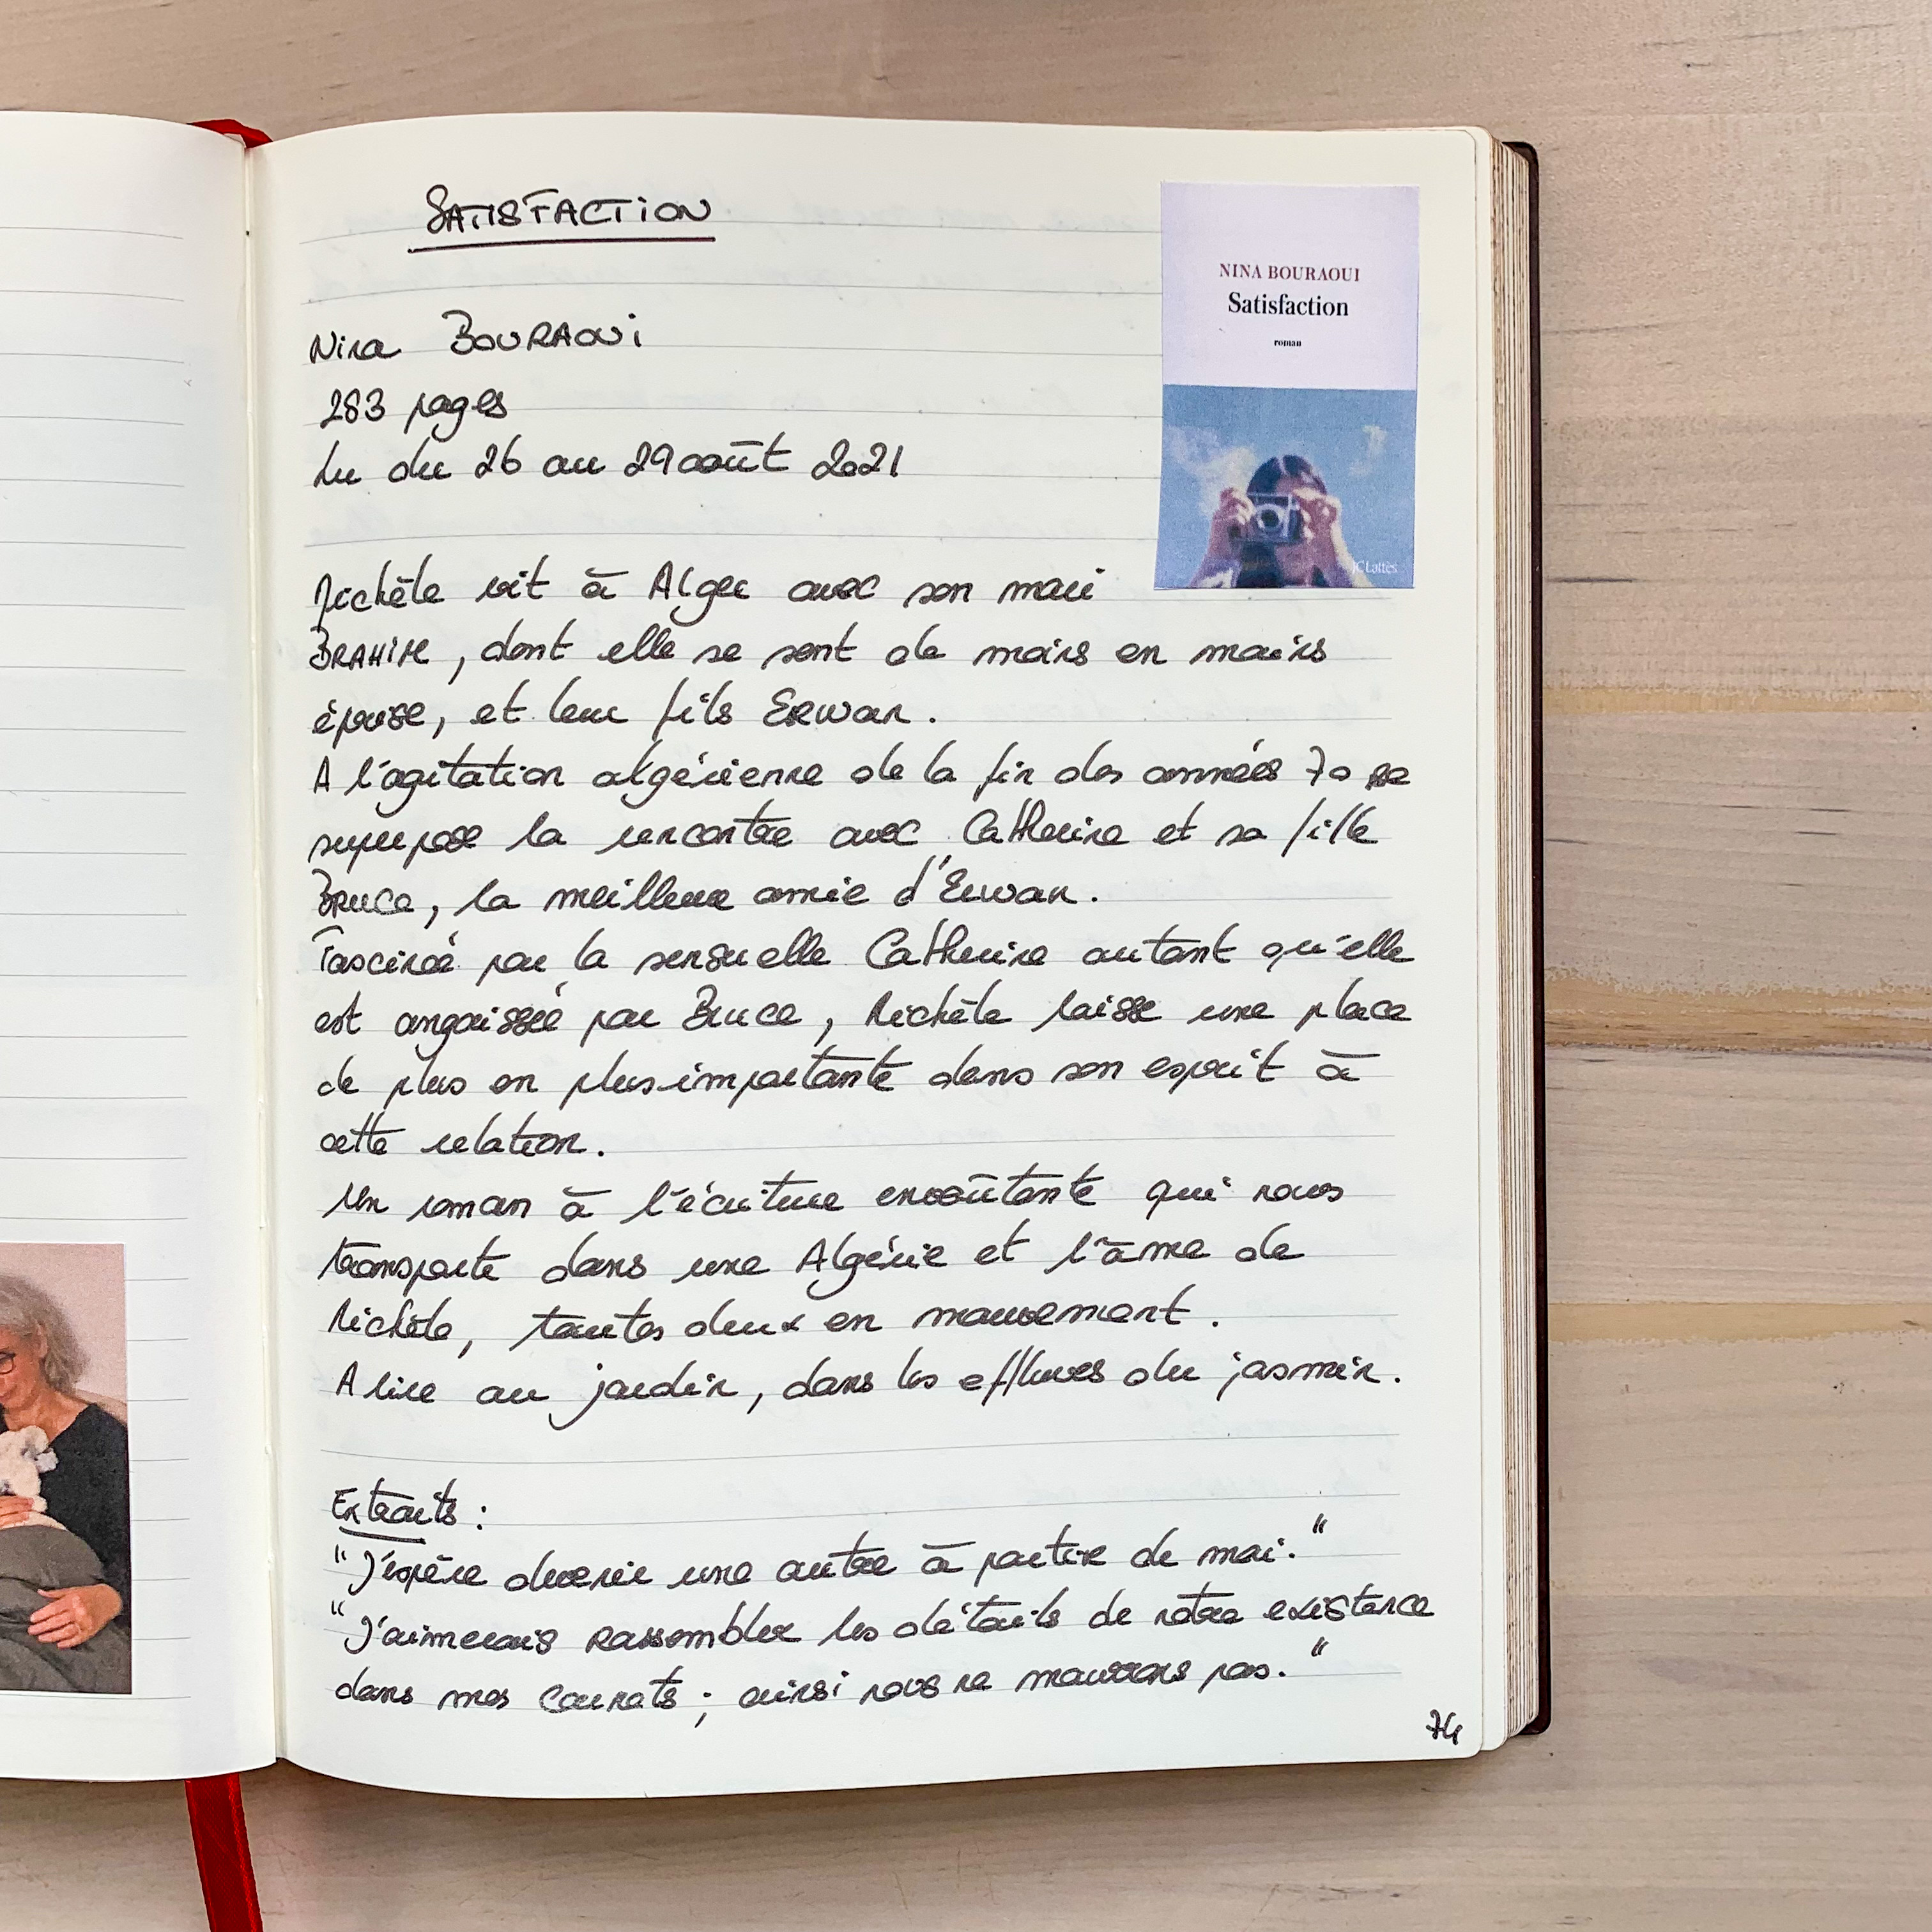 SATISFACTION
NINA BOURAOUI
Satisfaction
roman
JC Lattès
Nina BOURAOUI
283 pages
Lu du 26 au 29 août 2021
Michèle vit à Alger avec son mari
BRAHIM, dont elle se sent de moins en moins
éprise, et leur fils Erwan.
A l'agitation algérienne de la fin des années 70 se
superpose la rencontre avec Catherine et sa fille
Bruce, la meilleure amie d'Erwan.
Fascinée par la sensuelle Catherine autant qu'elle
est angoissée par Bruce, Michèle laisse une place
de plus en plus importante dans son esprit à
cette relation.
Un roman à l'écriture envoûtante qui nous
transporte dans une Algérie et l'âme de
Michèle, toutes deux en mouvement.
A lire au jardin, dans les effluves du jasmin.
Extraits :
"J'espère devenir une autre à partir de moi."
"J'aimerais rassembler les détails de notre existence
dans mes carnets ; ainsi nous ne mourrons pas."
74